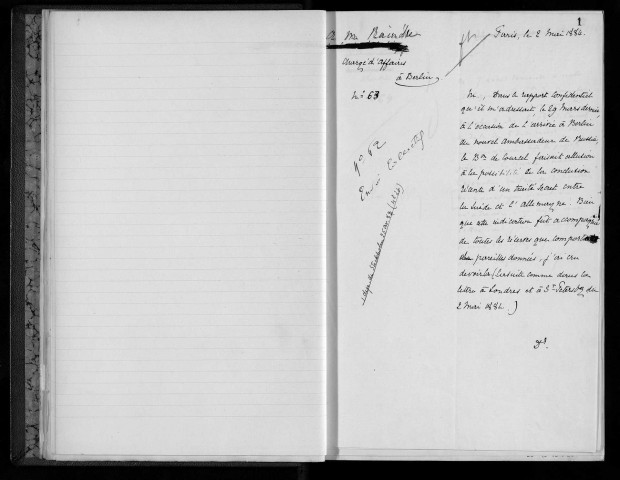 1
A Mr Raindre
Chargé d'affaires
à Berlin
No 63
No 62
Paris, le 2 Mai 1884.
M. , Dans le rapport confidentiel
qu'il m'adressait le 29 Mars dernier
à l'occasion de l'arrivée à Berlin
du nouvel ambassadeur de Russie,
le Bon de Courcel faisait allusion
à la possibilité de la conclusion
récente d'un traité secret entre
la Suède et l'Allemagne. Bien
que cette indication fût accompagnée
de toutes les réserves que comportent
de pareilles données, j'ai cru
devoir (la suite comme dans la
lettre à Londres et à St Petersbg du
2 Mai 1884.)